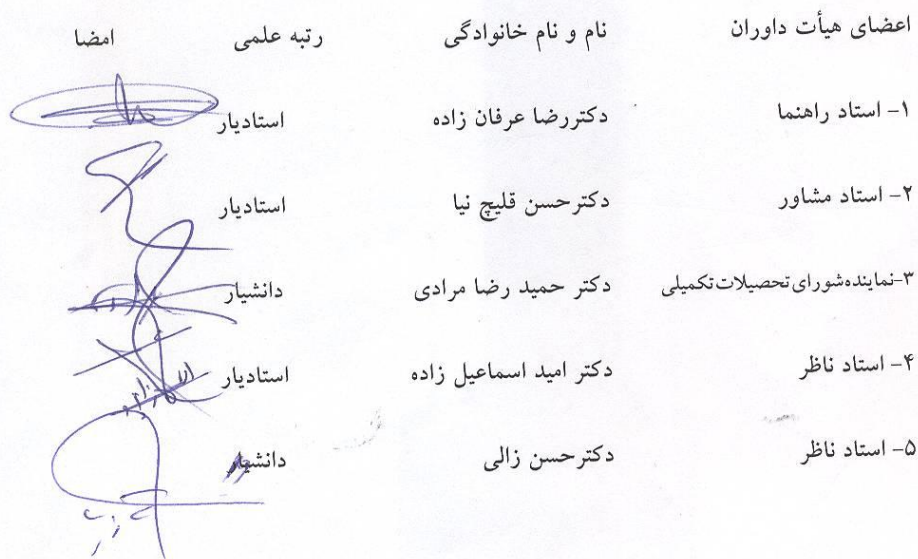 اعضای هیأت داوران نام و نام خانوادگی رتبه علمی امضا
۱- استاد راهنما دکتررضا عرفان زاده استادیار
۲- استاد مشاور دکترحسن قلیچ نیا استادیار
۳-نماینده‌شورای‌تحصیلات‌تکمیلی دکتر حمید رضا مرادی دانشیار
۴- استاد ناظر دکتر امید اسماعیل زاده استادیار
۵- استاد ناظر دکترحسن زالی دانشیار